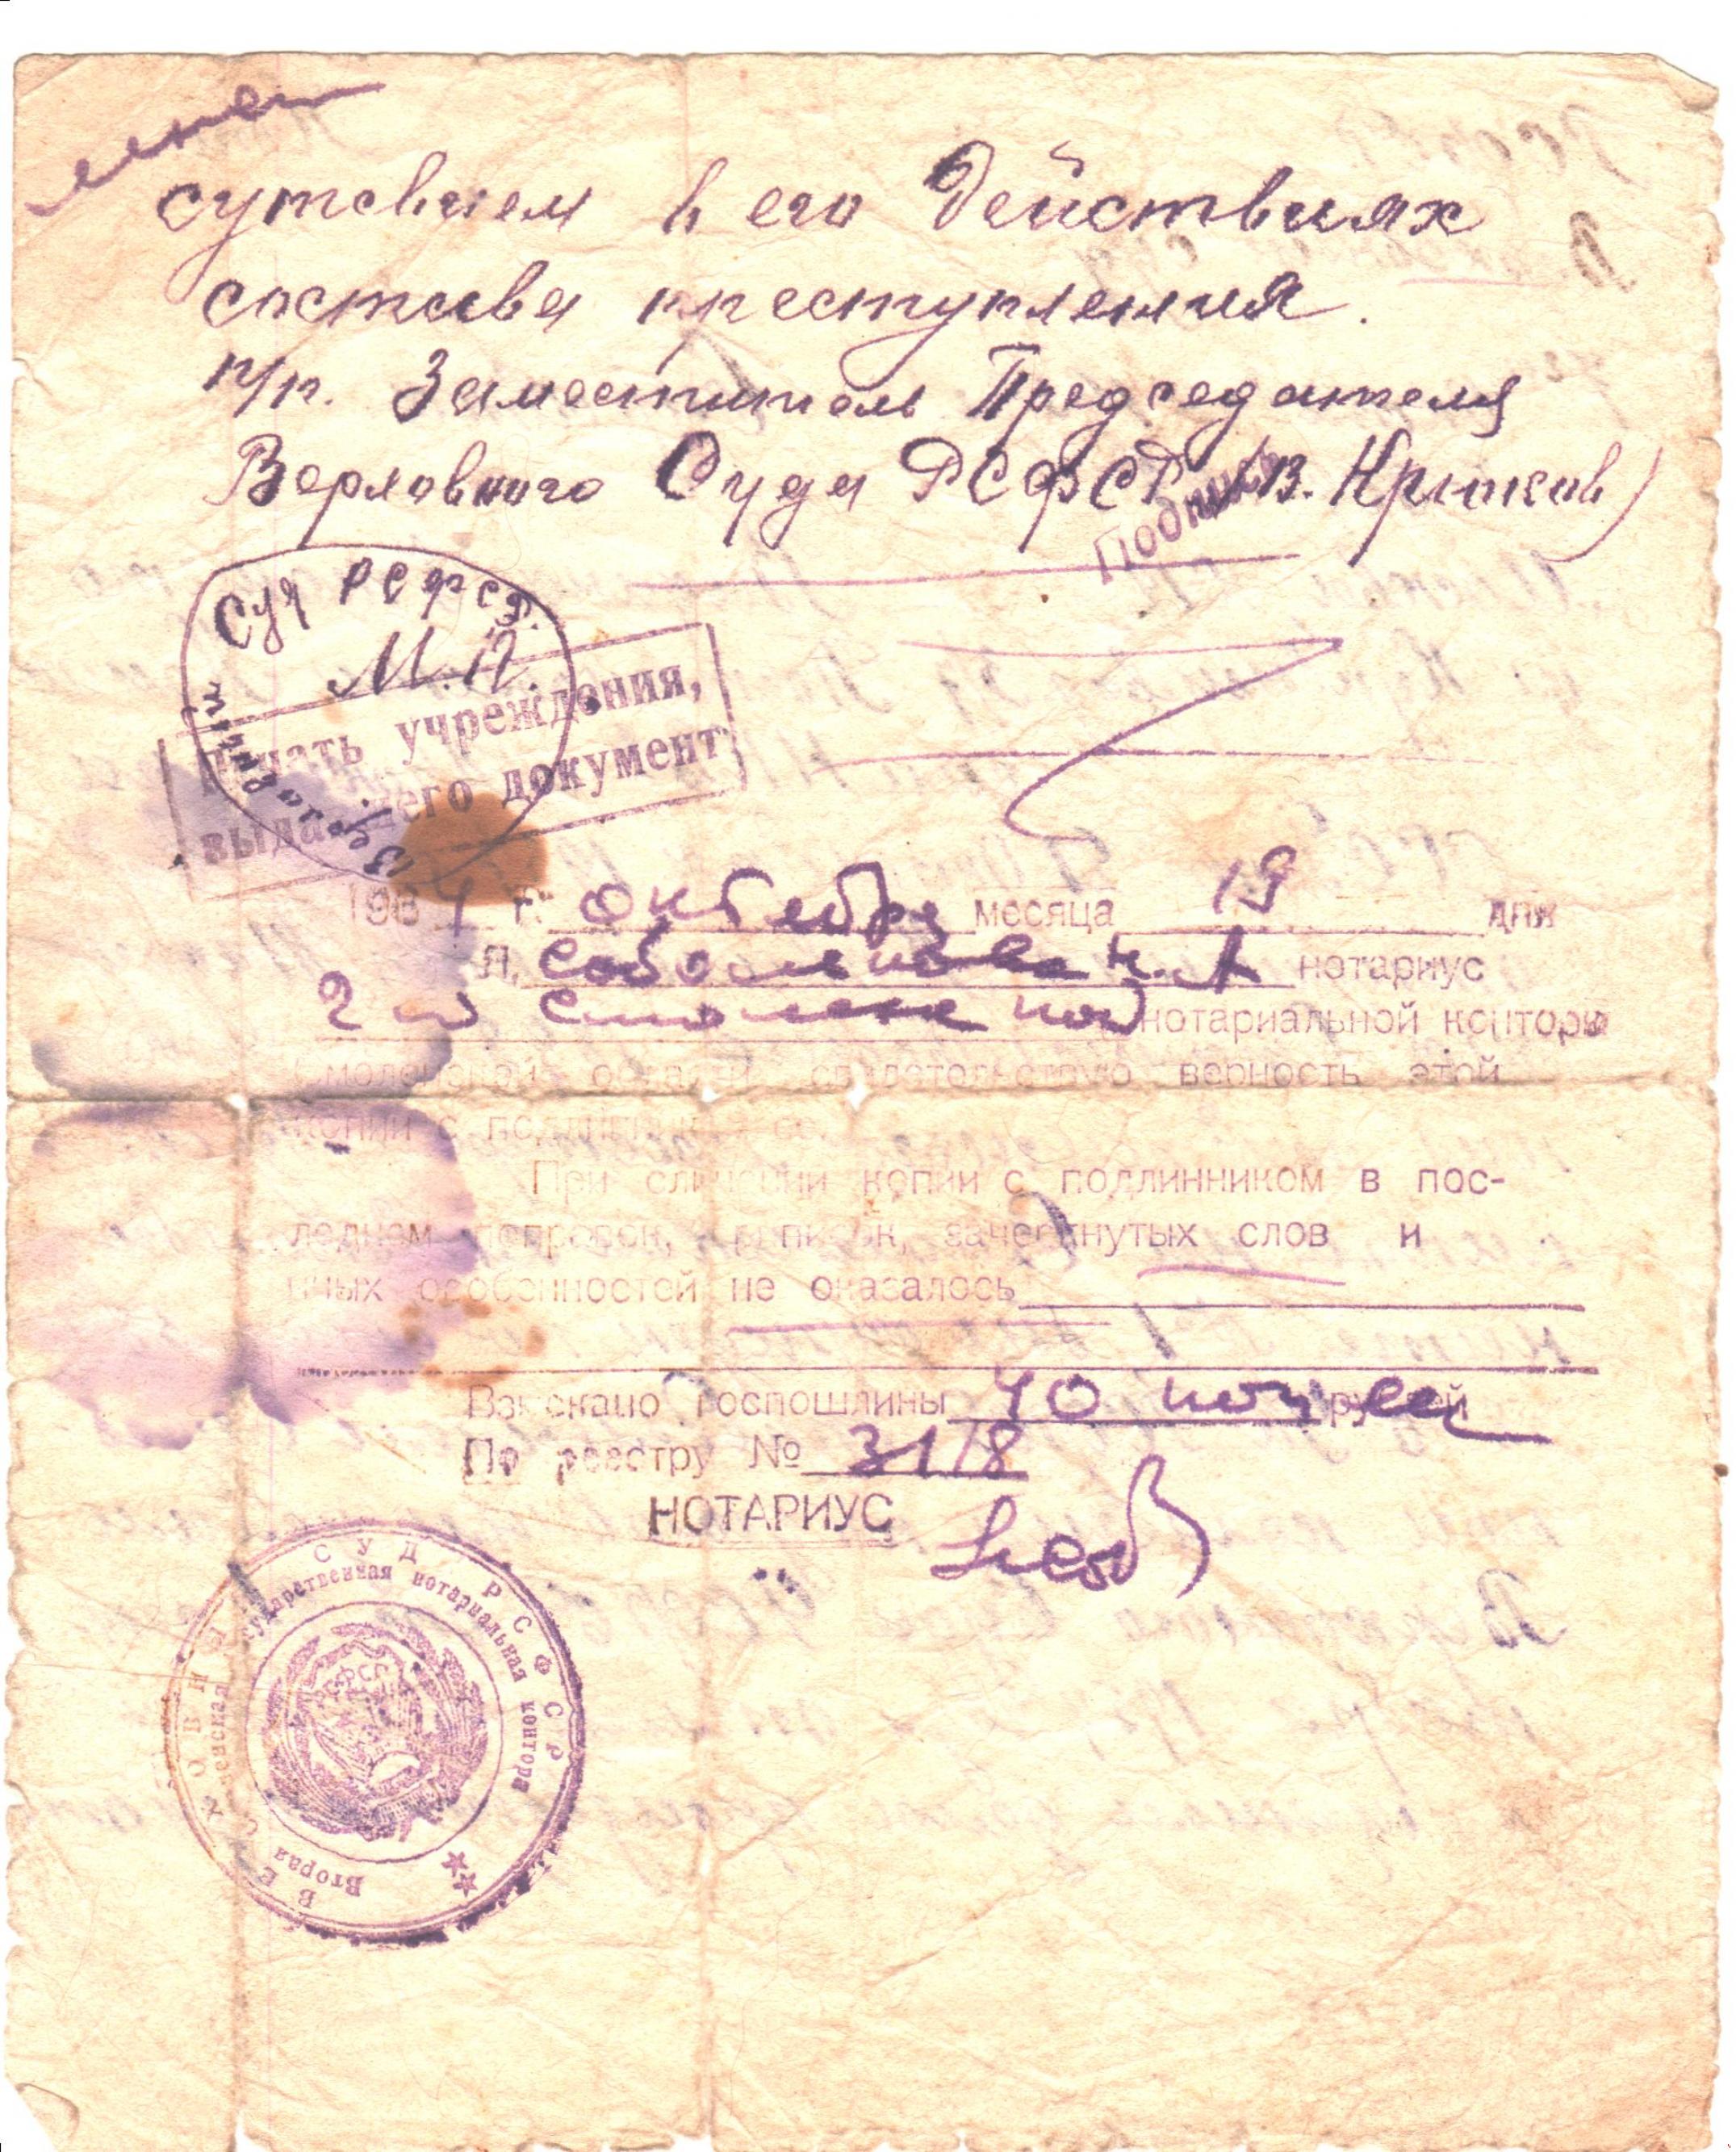 сутсвием в его действиях
состава преступления.
п/п. Заместитель Председателя
Верховного Суда РСФСР (В. Крюков)
Подпись
Верховный Суд РСФСР.
М.П.
Печать учреждения,
выдавшего документ
1964 г. октября месяца 19 дня
Я, Н.А нотариус
2 ой Смоленской нотариальной конторы
Смоленской области, свидетельствую верность этой
копии с подлинником ее.
При сличении копии с подлинником в пос-
леднем поправок, приписок, зачеркнутых слов и
иных особенностей не оказалось
Взыскано госпошлины 40 коп рублей
По реестру № 3118
НОТАРИУС
ВЕРХОВНЫЙ СУД РСФСР
Вторая Смоленская государственная нотариальная контора
РСФСР